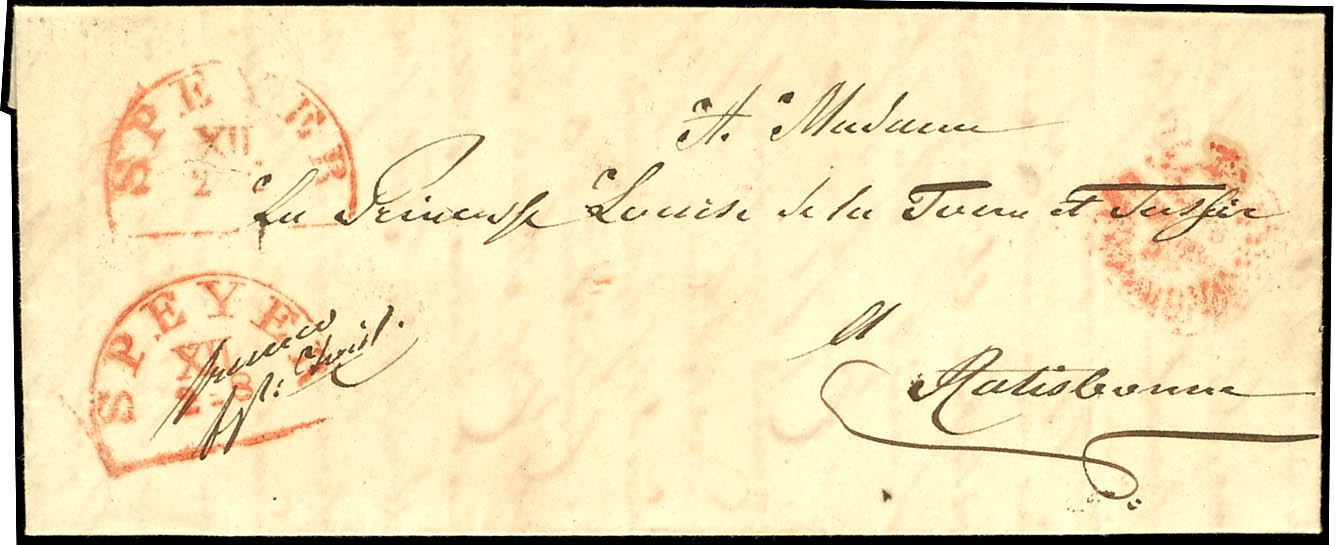 SPEYER
XII
2
A. Madame
La Princesse Louise de la Tour et Tassis
SPEYER
XII
2 8
franco
Christ.
à
Ratisbonne